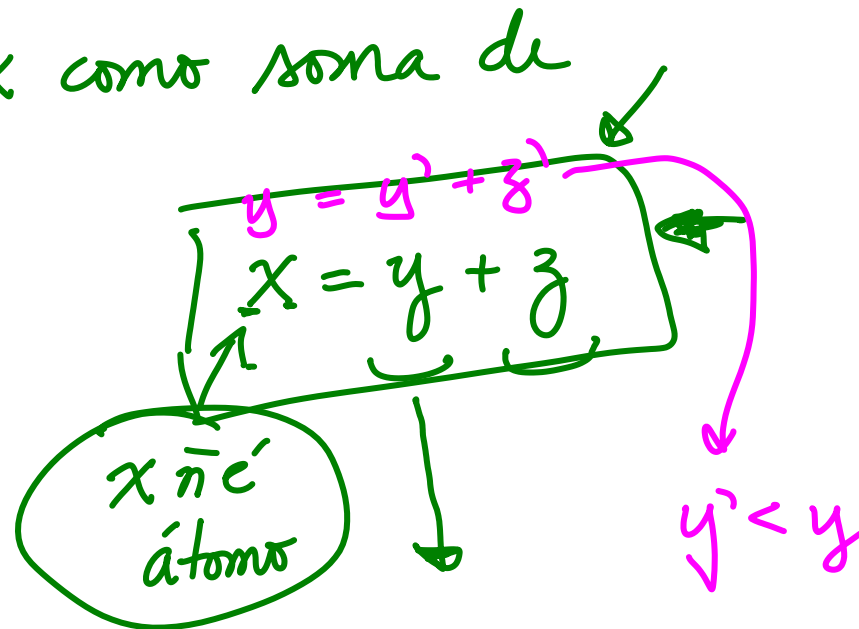 x como soma de
y = y' + z'
x = y + z
x ñ é
átomo
y' < y